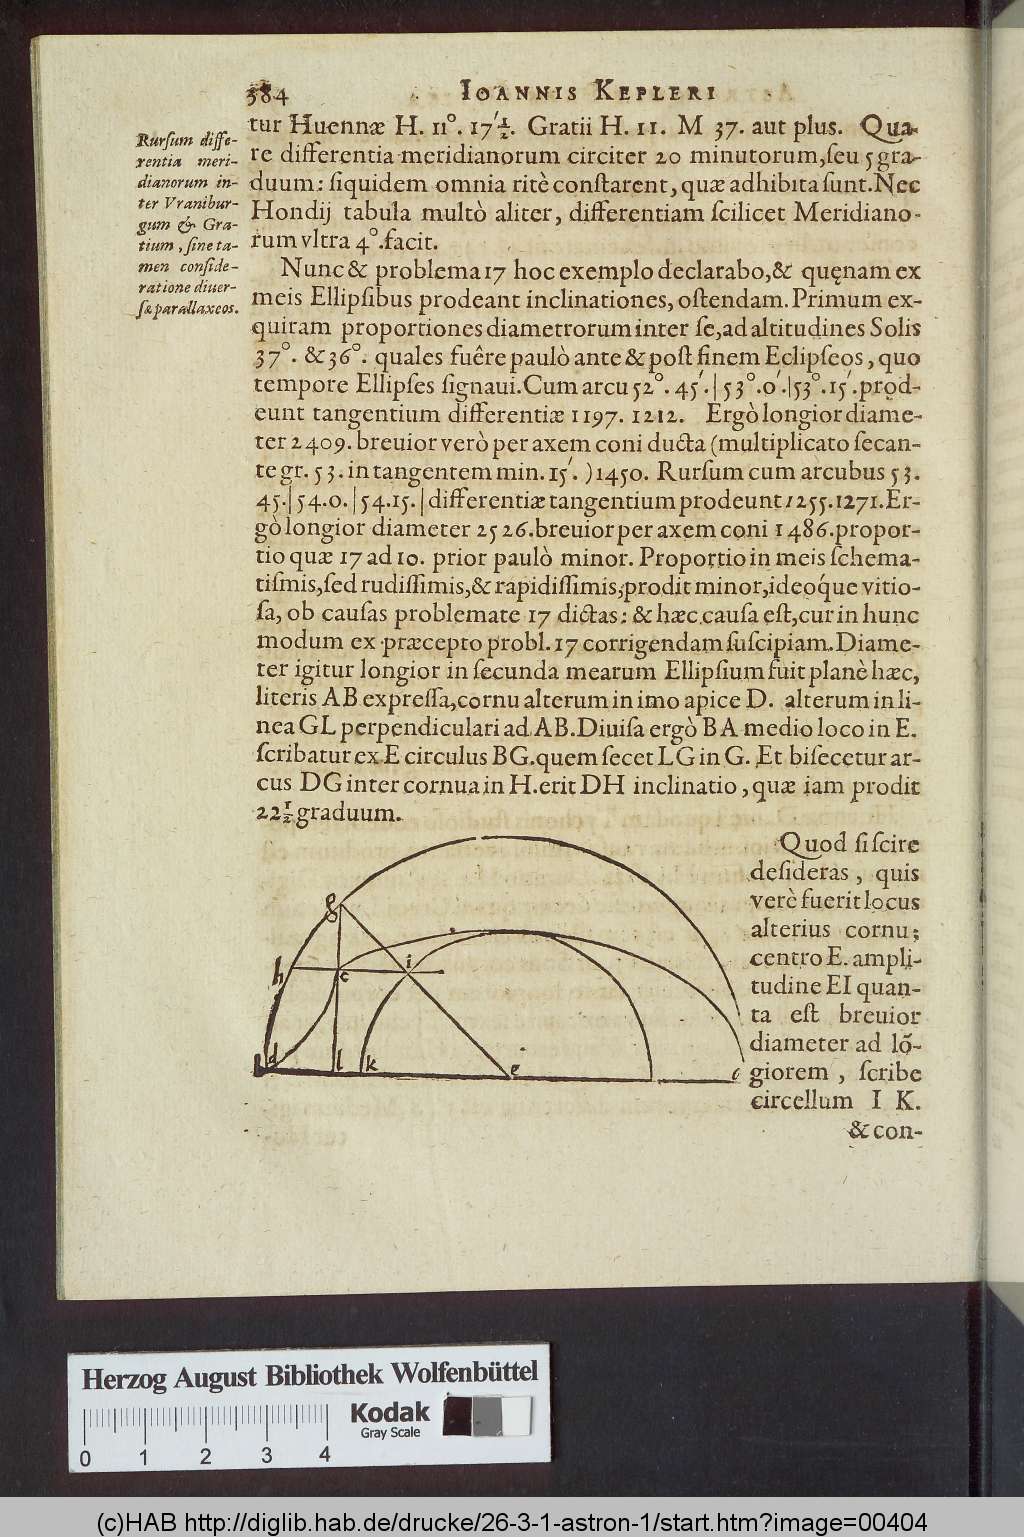 384 IOANNIS KEPLERI
Rurſum diffe-
rentia meri-
dianorum in-
ter Vranibur-
gum & Gra-
tium, ſine ta-
men conſide-
ratione diuer-
ſæ parallaxeos.
tur Huennæ H. 11°. 17′½. Gratii H. 11. M 37. aut plus. Qua-
re differentia meridianorum circiter 20 minutorum, ſeu 5 gra-
duum: ſiquidem omnia ritè conſtarent, quæ adhibita ſunt. Nec
Hondij tabula multò aliter, differentiam ſcilicet Meridiano-
rum vltra 4°. facit.
Nunc & problema 17 hoc exemplo declarabo, & quęnam ex
meis Ellipſibus prodeant inclinationes, oſtendam. Primum ex-
quiram proportiones diametrorum inter ſe, ad altitudines Solis
37°. & 36°. quales fuêre paulò ante & poſt finem Eclipſeos, quo
tempore Ellipſes ſignaui. Cum arcu 52°. 45′. | 53°. 0′. | 53°. 15′. prod-
eunt tangentium differentiæ 1197. 1212. Ergò longior diame-
ter 2409. breuior verò per axem coni ducta (multiplicato ſecan-
te gr. 53. in tangentem min. 15′. ) 1450. Rurſum cum arcubus 53.
45. | 54. 0. | 54. 15. | differentiæ tangentium prodeunt 1255. 1271. Er-
gò longior diameter 2526. breuior per axem coni 1486. propor-
tio quæ 17 ad 10. prior paulò minor. Proportio in meis ſchema-
tiſmis, ſed rudiſſimis, & rapidiſſimis, prodit minor, ideoq́ue vitio-
ſa, ob cauſas problemate 17 dictas: & hæc cauſa eſt, cur in hunc
modum ex præcepto probl. 17 corrigendam ſuſcipiam. Diame-
ter igitur longior in ſecunda mearum Ellipſium fuit planè hæc,
literis AB expreſſa, cornu alterum in imo apice D. alterum in li-
nea GL perpendiculari ad AB. Diuiſa ergò BA medio loco in E.
ſcribatur ex E circulus BG. quem ſecet LG in G. Et biſecetur ar-
cus DG inter cornua in H. erit DH inclinatio, quæ iam prodit
22½ graduum.
Quod ſi ſcire
deſideras, quis
verè fuerit locus
alterius cornu;
centro E. ampli-
tudine EI quan-
ta eſt breuior
diameter ad lõ-
giorem, ſcribe
circellum I K.
& con-
g
h c i
b d l k e
Herzog August Bibliothek Wolfenbüttel
Kodak
Gray Scale
0 1 2 3 4
(c)HAB http://diglib.hab.de/drucke/26-3-1-astron-1/start.htm?image=00404